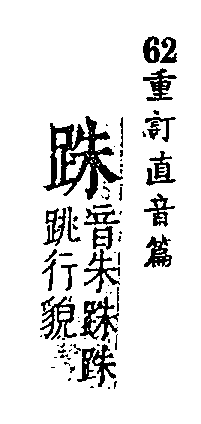 62重訂直音篇
跦
音朱跦跦
跳行貌